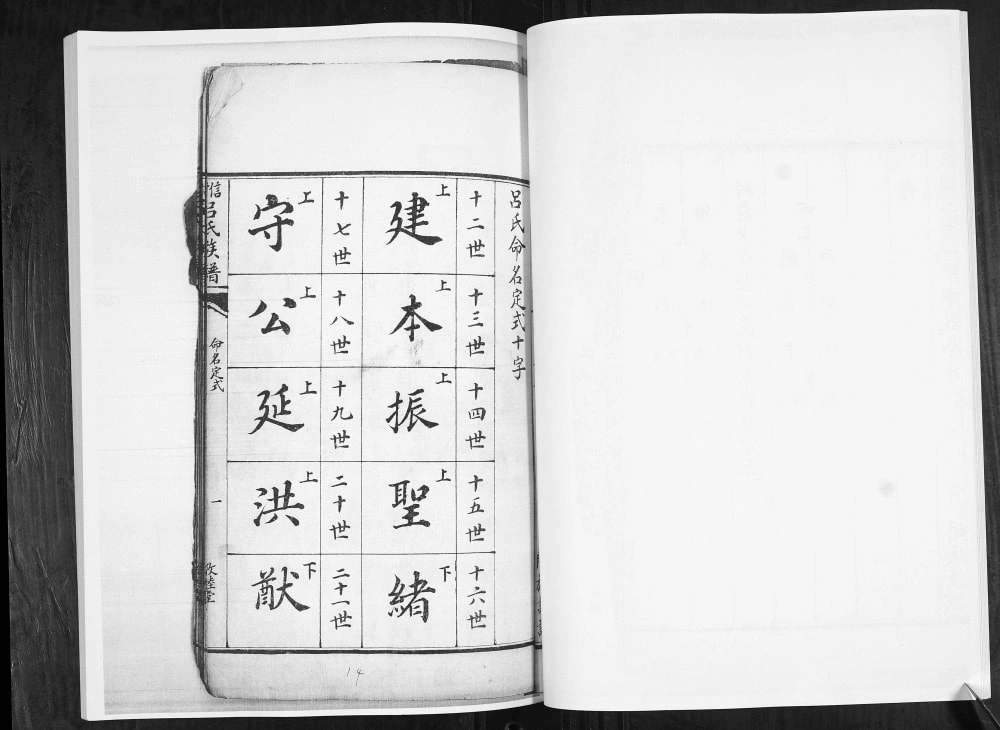 呂氏命名定式十字
十二世
上
建
十三世
上
本
十四世
上
振
十五世
上
聖
十六世
下
緒
十七世
上
守
十八世
上
公
十九世
上
延
二十世
上
洪
二十一世
下
猷
信
呂氏族譜
命名定式
一
敦睦堂
14